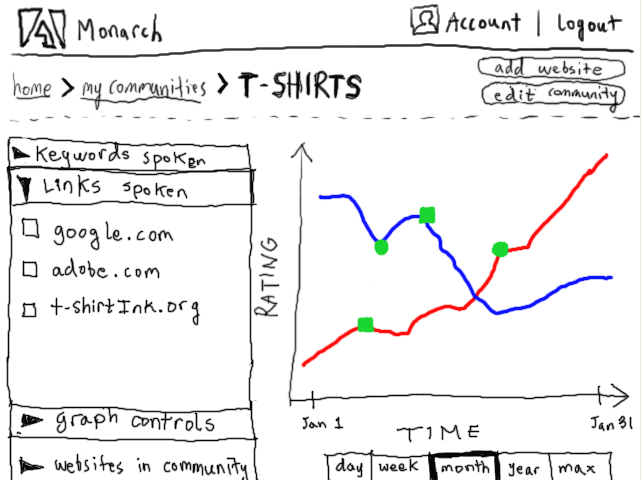 Monarch
Account | Logout
home > my communities > T-SHIRTS
add website
edit community
Keywords spoken
Links spoken
google.com
adobe.com
t-shirtInk.org
graph controls
websites in community
RATING
Jan 1
Jan 31
TIME
day week month year max